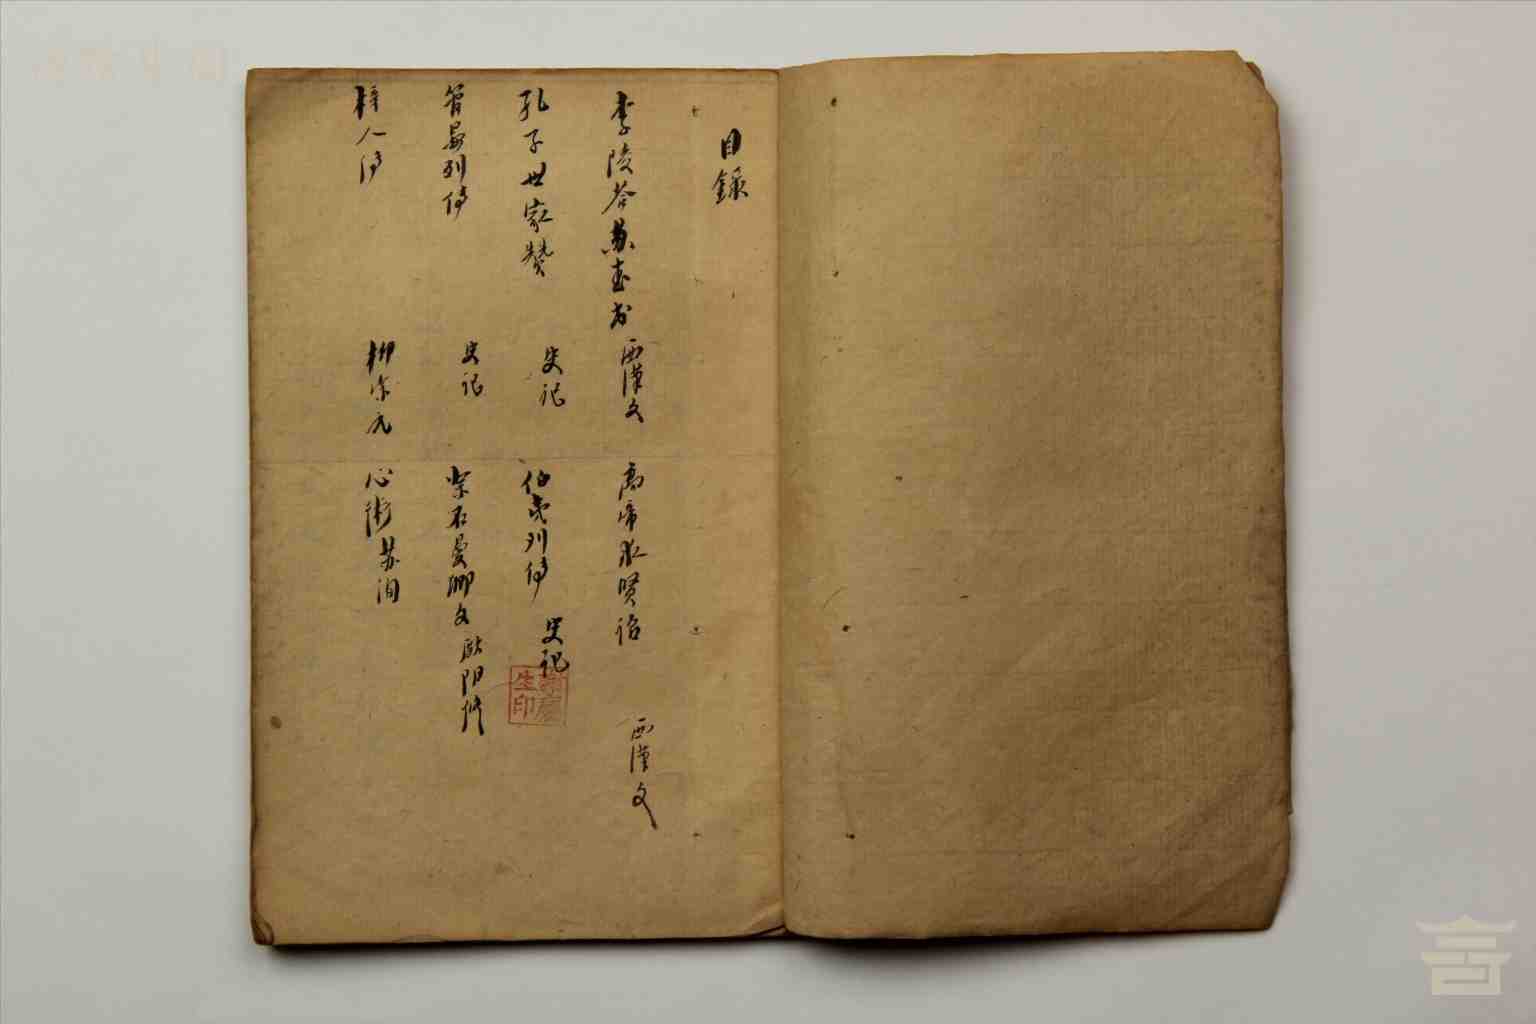 目錄
李陵答蘇武書 西漢文 高帝求賢詔 西漢文
孔子世家贊 史記 伯夷列傳 史記
管晏列傳 史記 祭石曼卿文 歐陽修
梓人傳 柳宗元 心術 蘇洵
生印